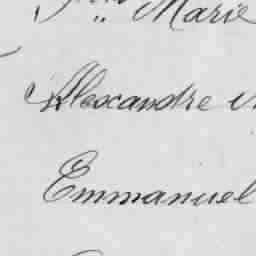 Marie
Alexandre
Emmanuel